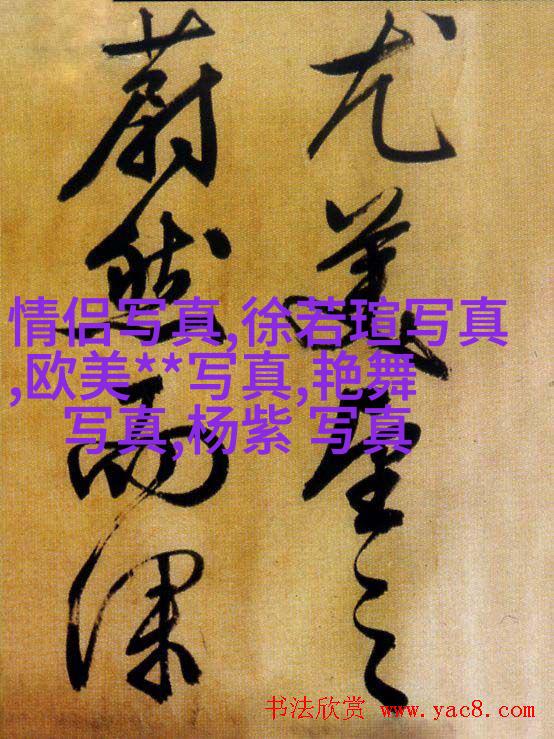 尤美望之
蔚然而深
情侣写真,徐若瑄写真
,欧美**写真,艳舞
写真,杨紫 写真
书法欣赏 www.yac8.com